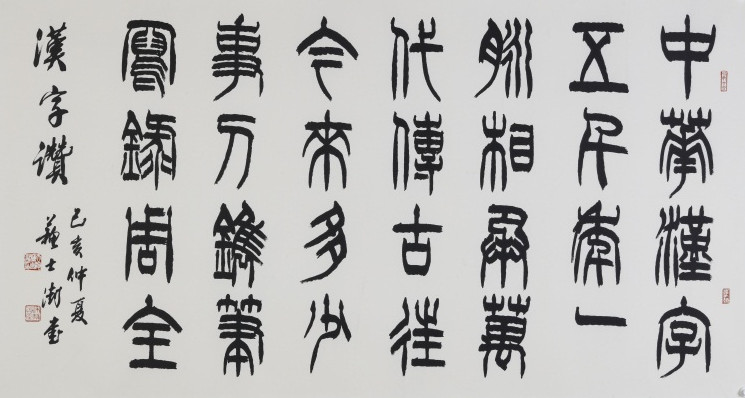 中華漢字
五千年一
脈相承萬
代傳古往
今來多少
事刀鐫筆
寫錄周全
漢字讚
己亥仲夏
蘇士澍書